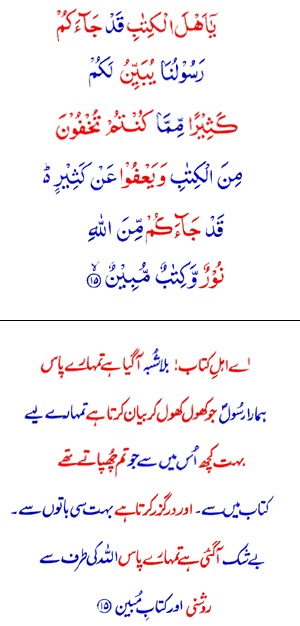 يٰٓاَهْلَ الْكِتٰبِ قَدْ جَآءَكُمْ
رَسُوْلُنَا يُبَيِّنُ لَكُمْ
كَثِيْرًا مِّمَّا كُنْتُمْ تُخْفُوْنَ
مِنَ الْكِتٰبِ وَيَعْفُوْا عَنْ كَثِيْرٍ ۬ؕ
قَدْ جَآءَكُمْ مِّنَ اللّٰهِ
نُوْرٌ وَّكِتٰبٌ مُّبِيْنٌ ۙ﴿۱۵﴾
اے اہلِ کتاب! بلاشُبہ آگیا ہے تمہارے پاس
ہمارا رسُولؐ جو کھول کھول کر بیان کرتا ہے تمہارے لیے
بہت کچھ اُس میں سے جو تم چُھپاتے تھے
کتاب میں سے۔ اور درگزر کرتا ہے بہت سی باتوں سے۔
بے شک آگئی ہے تمہارے پاس اللہ کی طرف سے
روشنی اور کتابِ مُبین ﴿۱۵﴾